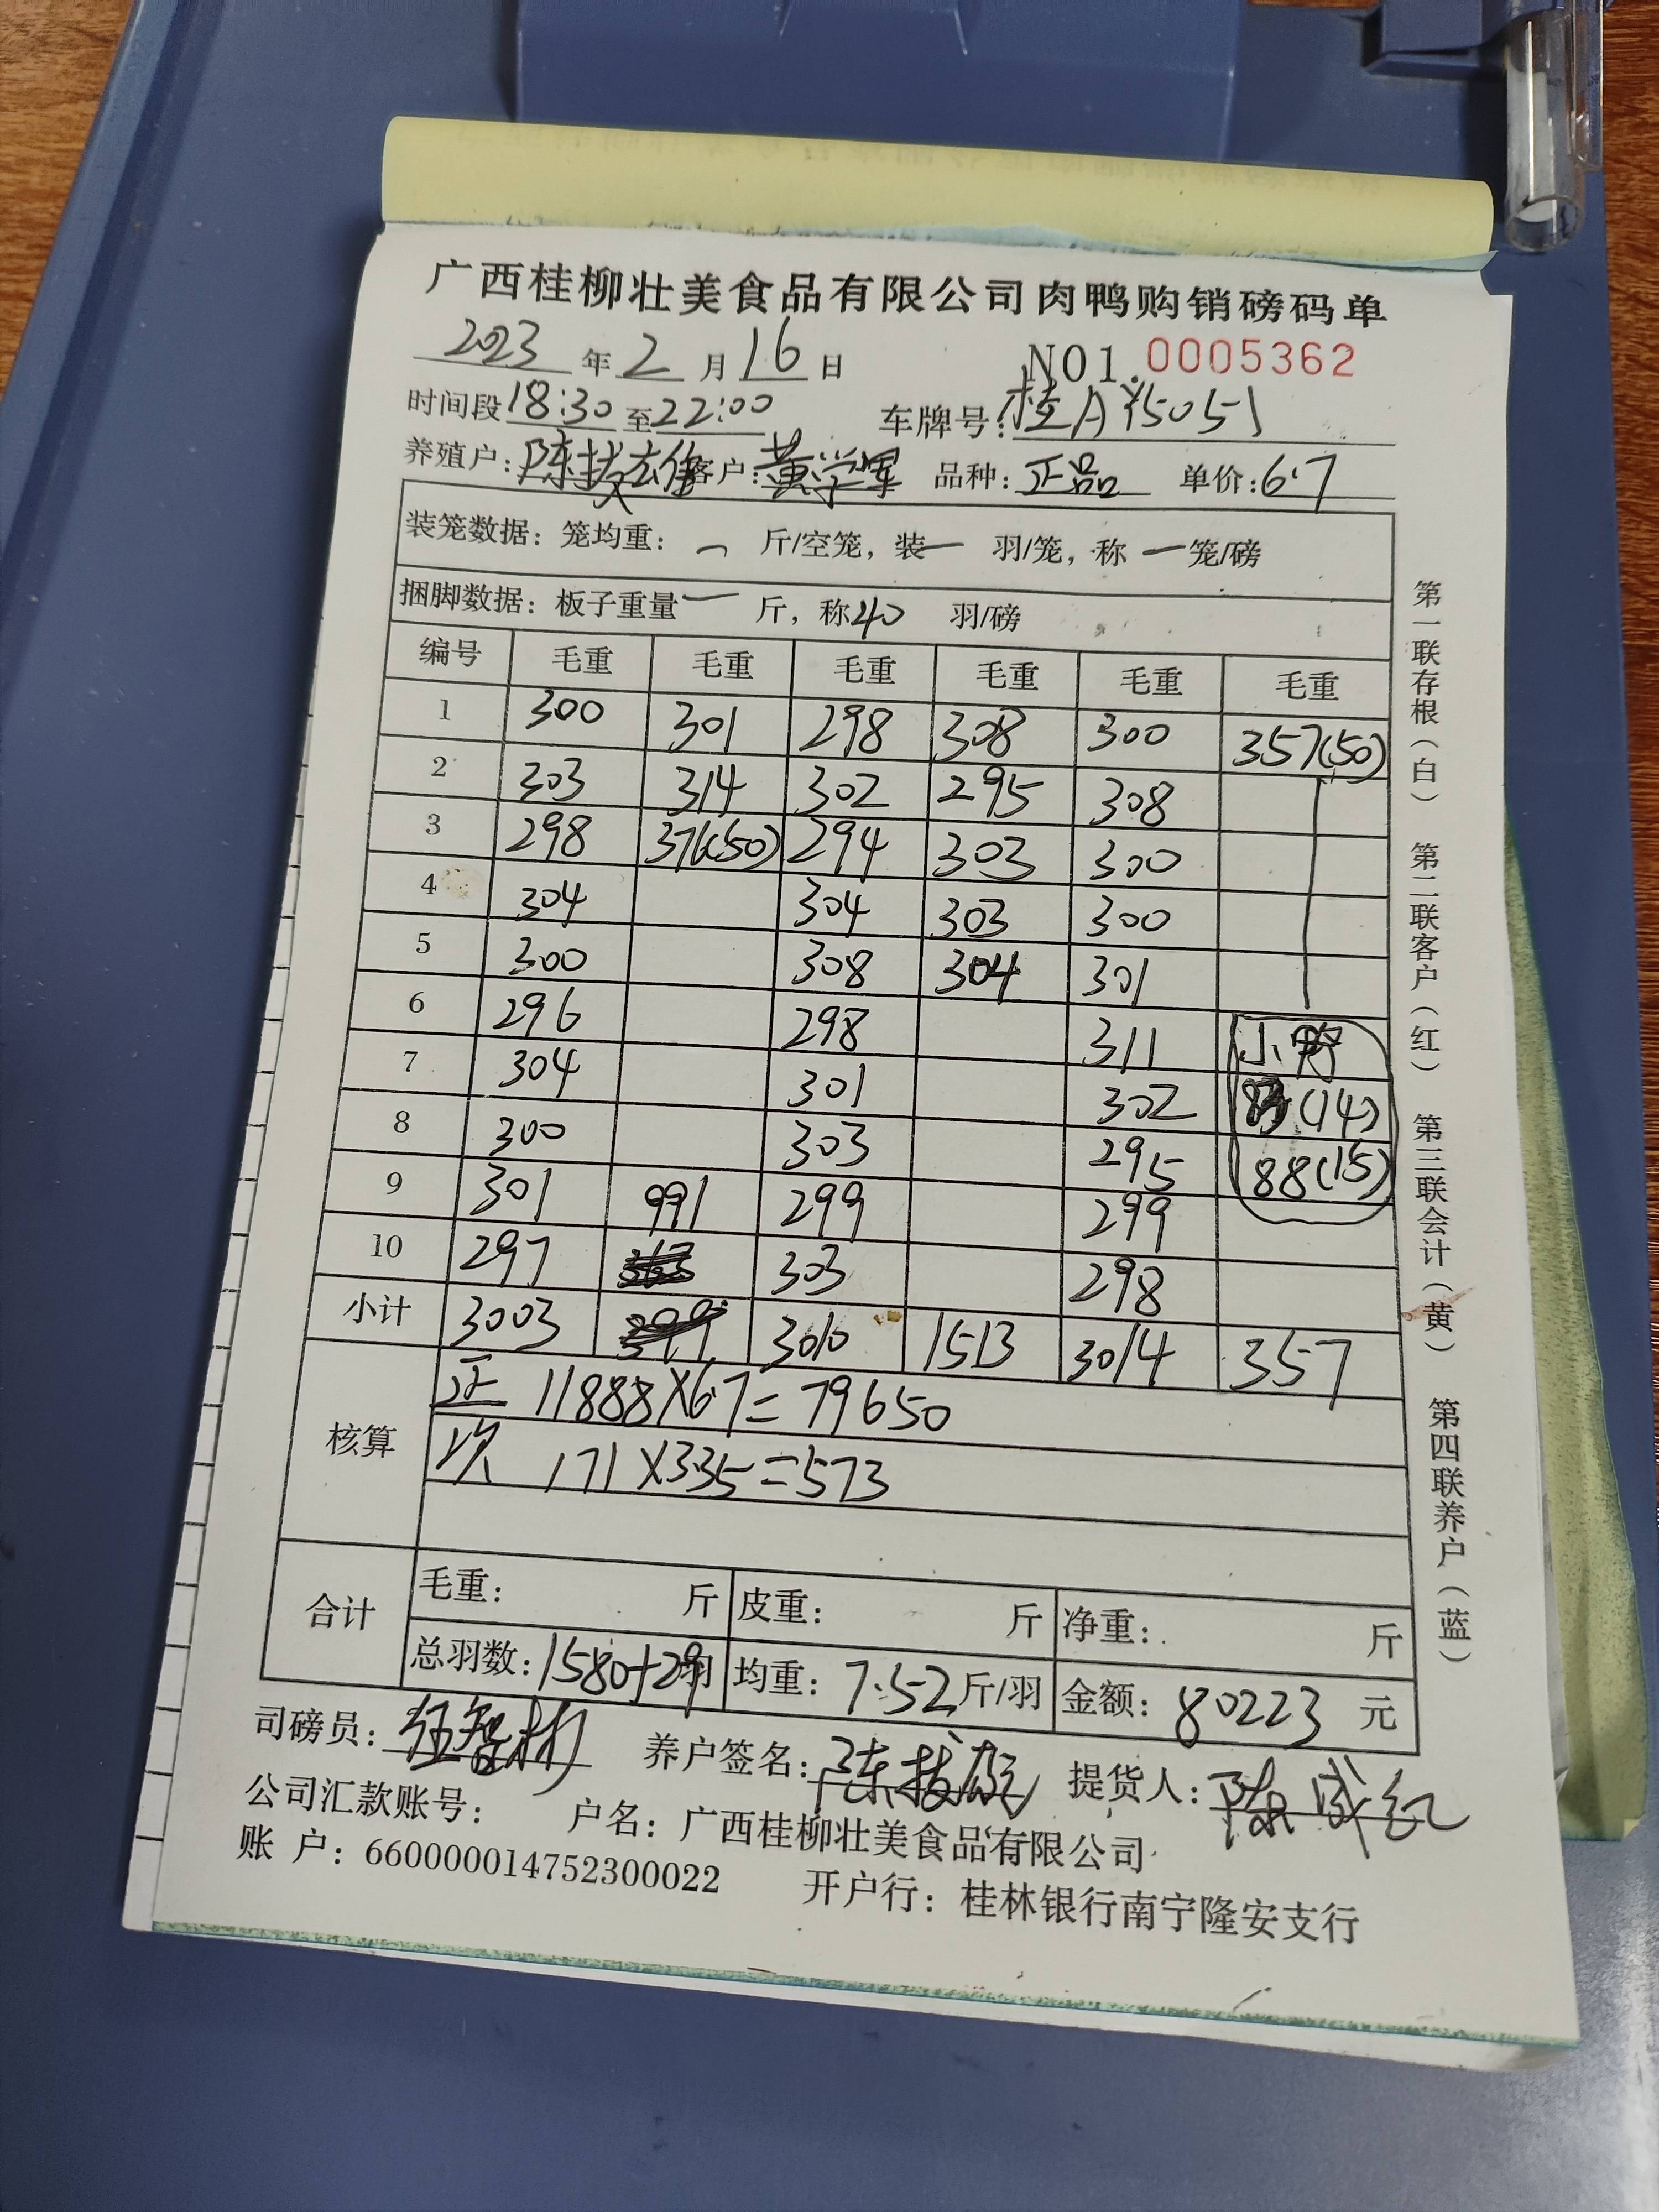 广西桂柳壮美食品有限公司肉鸭购销磅码单
2023 年 2 月 16 日 NO1.0005362
时间段 18:30 至 22:00 车牌号: 桂A Y5051
养殖户: 陈拔雄 客户: 黄学军 品种: 正品 单价: 6.7
装笼数据: 笼均重: 一 斤/空笼, 装 一 羽/笼, 称 一 笼/磅
捆脚数据: 板子重量 一 斤, 称 40 羽/磅
编号 毛重 毛重 毛重 毛重 毛重 毛重
1 300 301 298 308 300 357(50)
2 303 314 302 295 308
3 298 376(50) 294 303 300
4 304 304 303 300
5 300 308 304 301
6 296 298 311 小鸭
7 304 301 302 83(14)
8 300 303 295 88(15)
9 301 991 299 299
10 297 303 298
小计 3003 3010 1513 3014 357
核算
正 11888×6.7=79650
次 171×3.35=573
合计
毛重: 斤 皮重: 斤 净重: 斤
总羽数: 1580+29 羽 均重: 7.52 斤/羽 金额: 80223 元
司磅员: 伍智彬 养户签名: 陈拔雄 提货人: 陈成红
公司汇款账号: 户名: 广西桂柳壮美食品有限公司
账 户: 660000014752300022 开户行: 桂林银行南宁隆安支行
第一联存根(白) 第二联客户(红) 第三联会计(黄) 第四联养户(蓝)